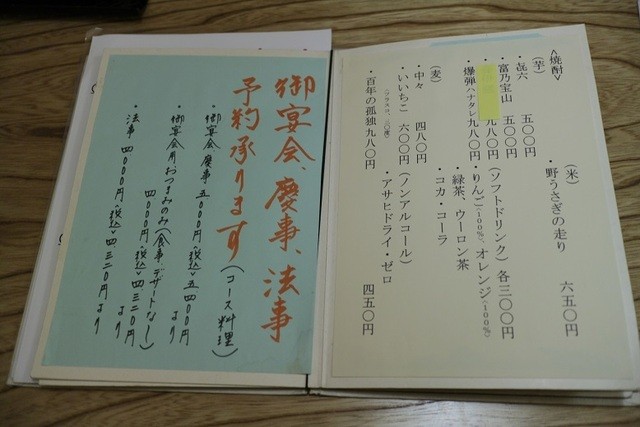 <焼酎>
(芋)
・㐂六 五〇〇円
・富乃宝山 五〇〇円
九八〇円
・爆弾ハナタレ 九八〇円
(麦)
・中々 四八〇円
・いいちこ 六〇〇円
・百年の孤独 九八〇円
(米)
・野うさぎの走り 六五〇円
(ソフトドリンク) 各三〇〇円
・りんご(100%)、オレンジ(100%)
緑茶、ウーロン茶
・コカ・コーラ
(ノンアルコール)
・アサヒドライ・ゼロ 四五〇円
御宴会、慶事、法事
予約承ります(コース料理)
・御宴会 慶事 五〇〇〇円・税込五四〇〇円より
・御宴会用おつまみのみ(食事、デザートなし)
四〇〇〇円・税込四三二〇円より
・法事 四〇〇〇円・税込四三二〇円より